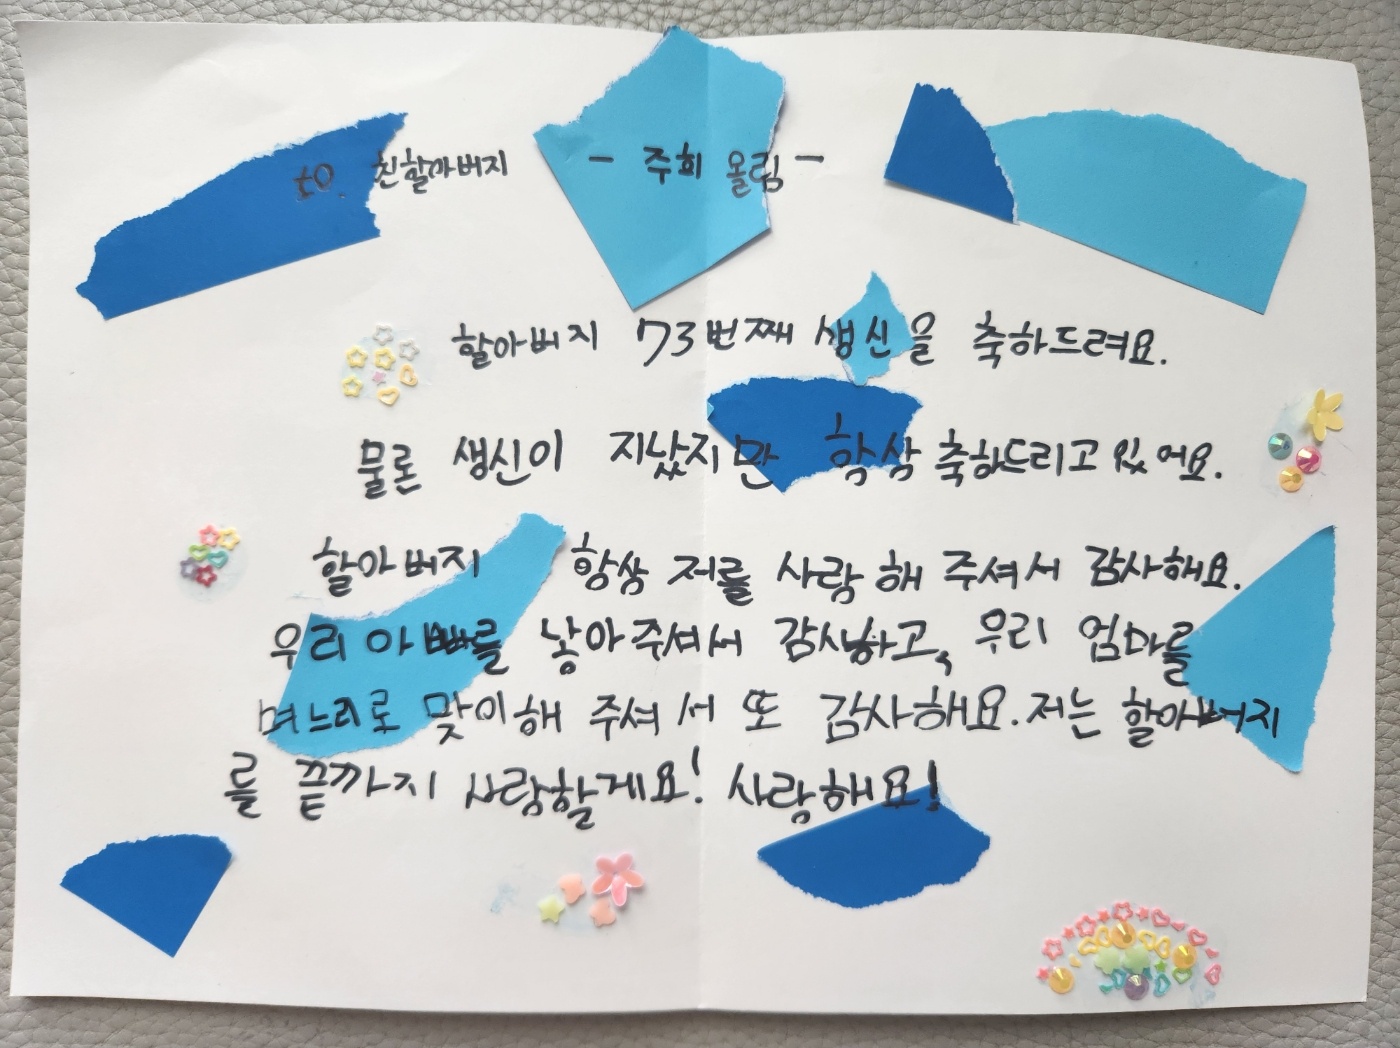 to. 친할아버지
- 주희 올림 -
할아버지 73번째 생신을 축하드려요.
물론 생신이 지났지만 항상 축하드리고 있어요.
할아버지 항상 저를 사랑해 주셔서 감사해요.
우리 아빠를 낳아주셔서 감사하고, 우리 엄마를
며느리로 맞이해 주셔서 또 감사해요. 저는 할아버지
를 끝까지 사랑할게요! 사랑해요!